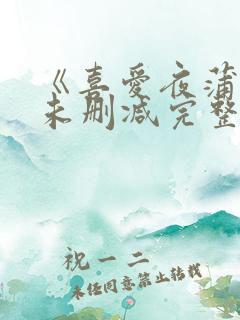 《喜爱夜蒲
未删减完整
祝一二
未经同意禁止转载